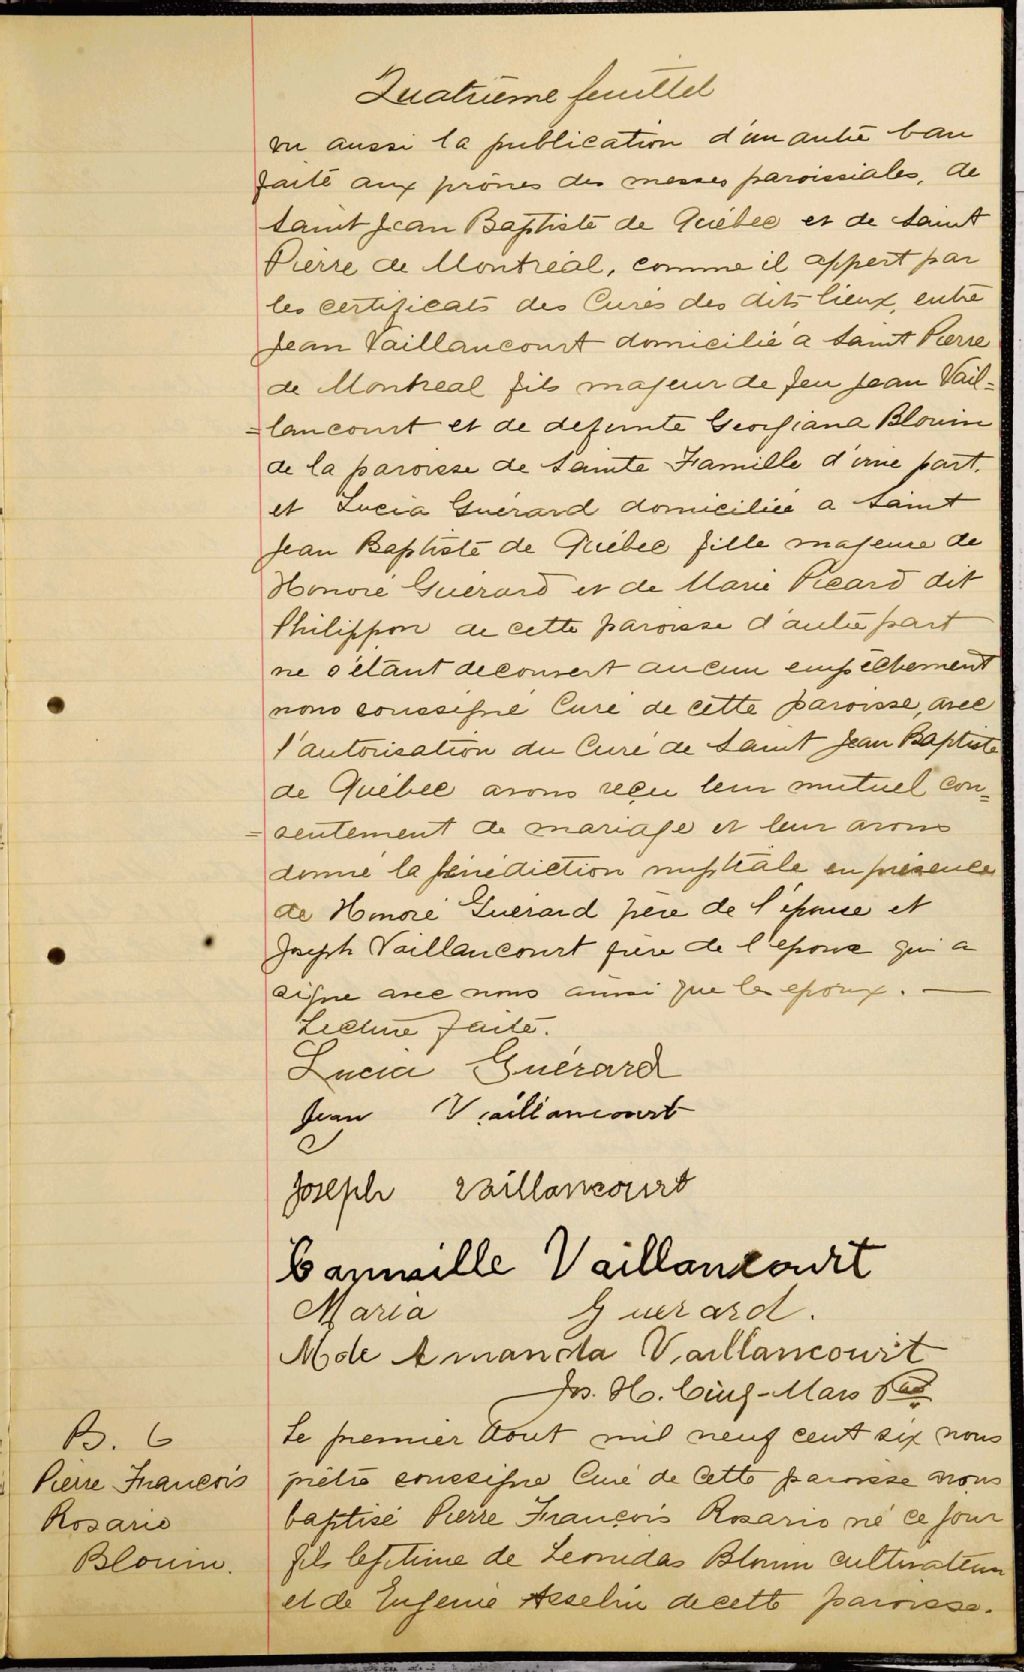 Quatrième feuillet
vu aussi la publication d'un autre ban
faite aux prônes des messes paroissiales, de
Saint Jean Baptiste de Québec et de Saint
Pierre de Montréal, comme il appert par
les certificats des Curés des dits lieux, entre
Jean Vaillancourt domicilié à Saint Pierre
de Montreal fils majeur de feu Jean Vail=
=lancourt et de defunte Georgiana Blouin
de la paroisse de Sainte Famille d'une part.
et Lucia Guérard domiciliée a Saint
Jean Baptiste de Québec fille majeure de
Honoré Guérard et de Marie Picard dit
Philippon de cette paroisse d'autre part
ne s'étant decouvert aucun empêchement
nous soussigné Curé de cette paroisse, avec
l'autorisation du Curé de Saint Jean Baptiste
de Québec avons reçu leur mutuel con=
=sentement de mariage et leur avons
donné la bénédiction nuptiale en présence
de Honoré Guérard père de l'épouse et
Joseph Vaillancourt frère de l'epoux qui a
signe avec nous ainsi que les epoux. —
Lecture faite.
Lucia Guérard
Jean Vaillancourt
Joseph Vaillancourt
Cammille Vaillancourt
Maria Guerard.
Mde Amanda Vaillancourt
Jos. H. Cinq-Mars
B. 6
Pierre François
Rosario
Blouin.
Le premier Aout mil neuf cent six nous
prêtre soussigne Curé de cette paroisse avons
baptisé Pierre François Rosario né ce jour
fils legitime de Leonidas Blouin cultivateur
et de Eugenie Asselin de cette paroisse.